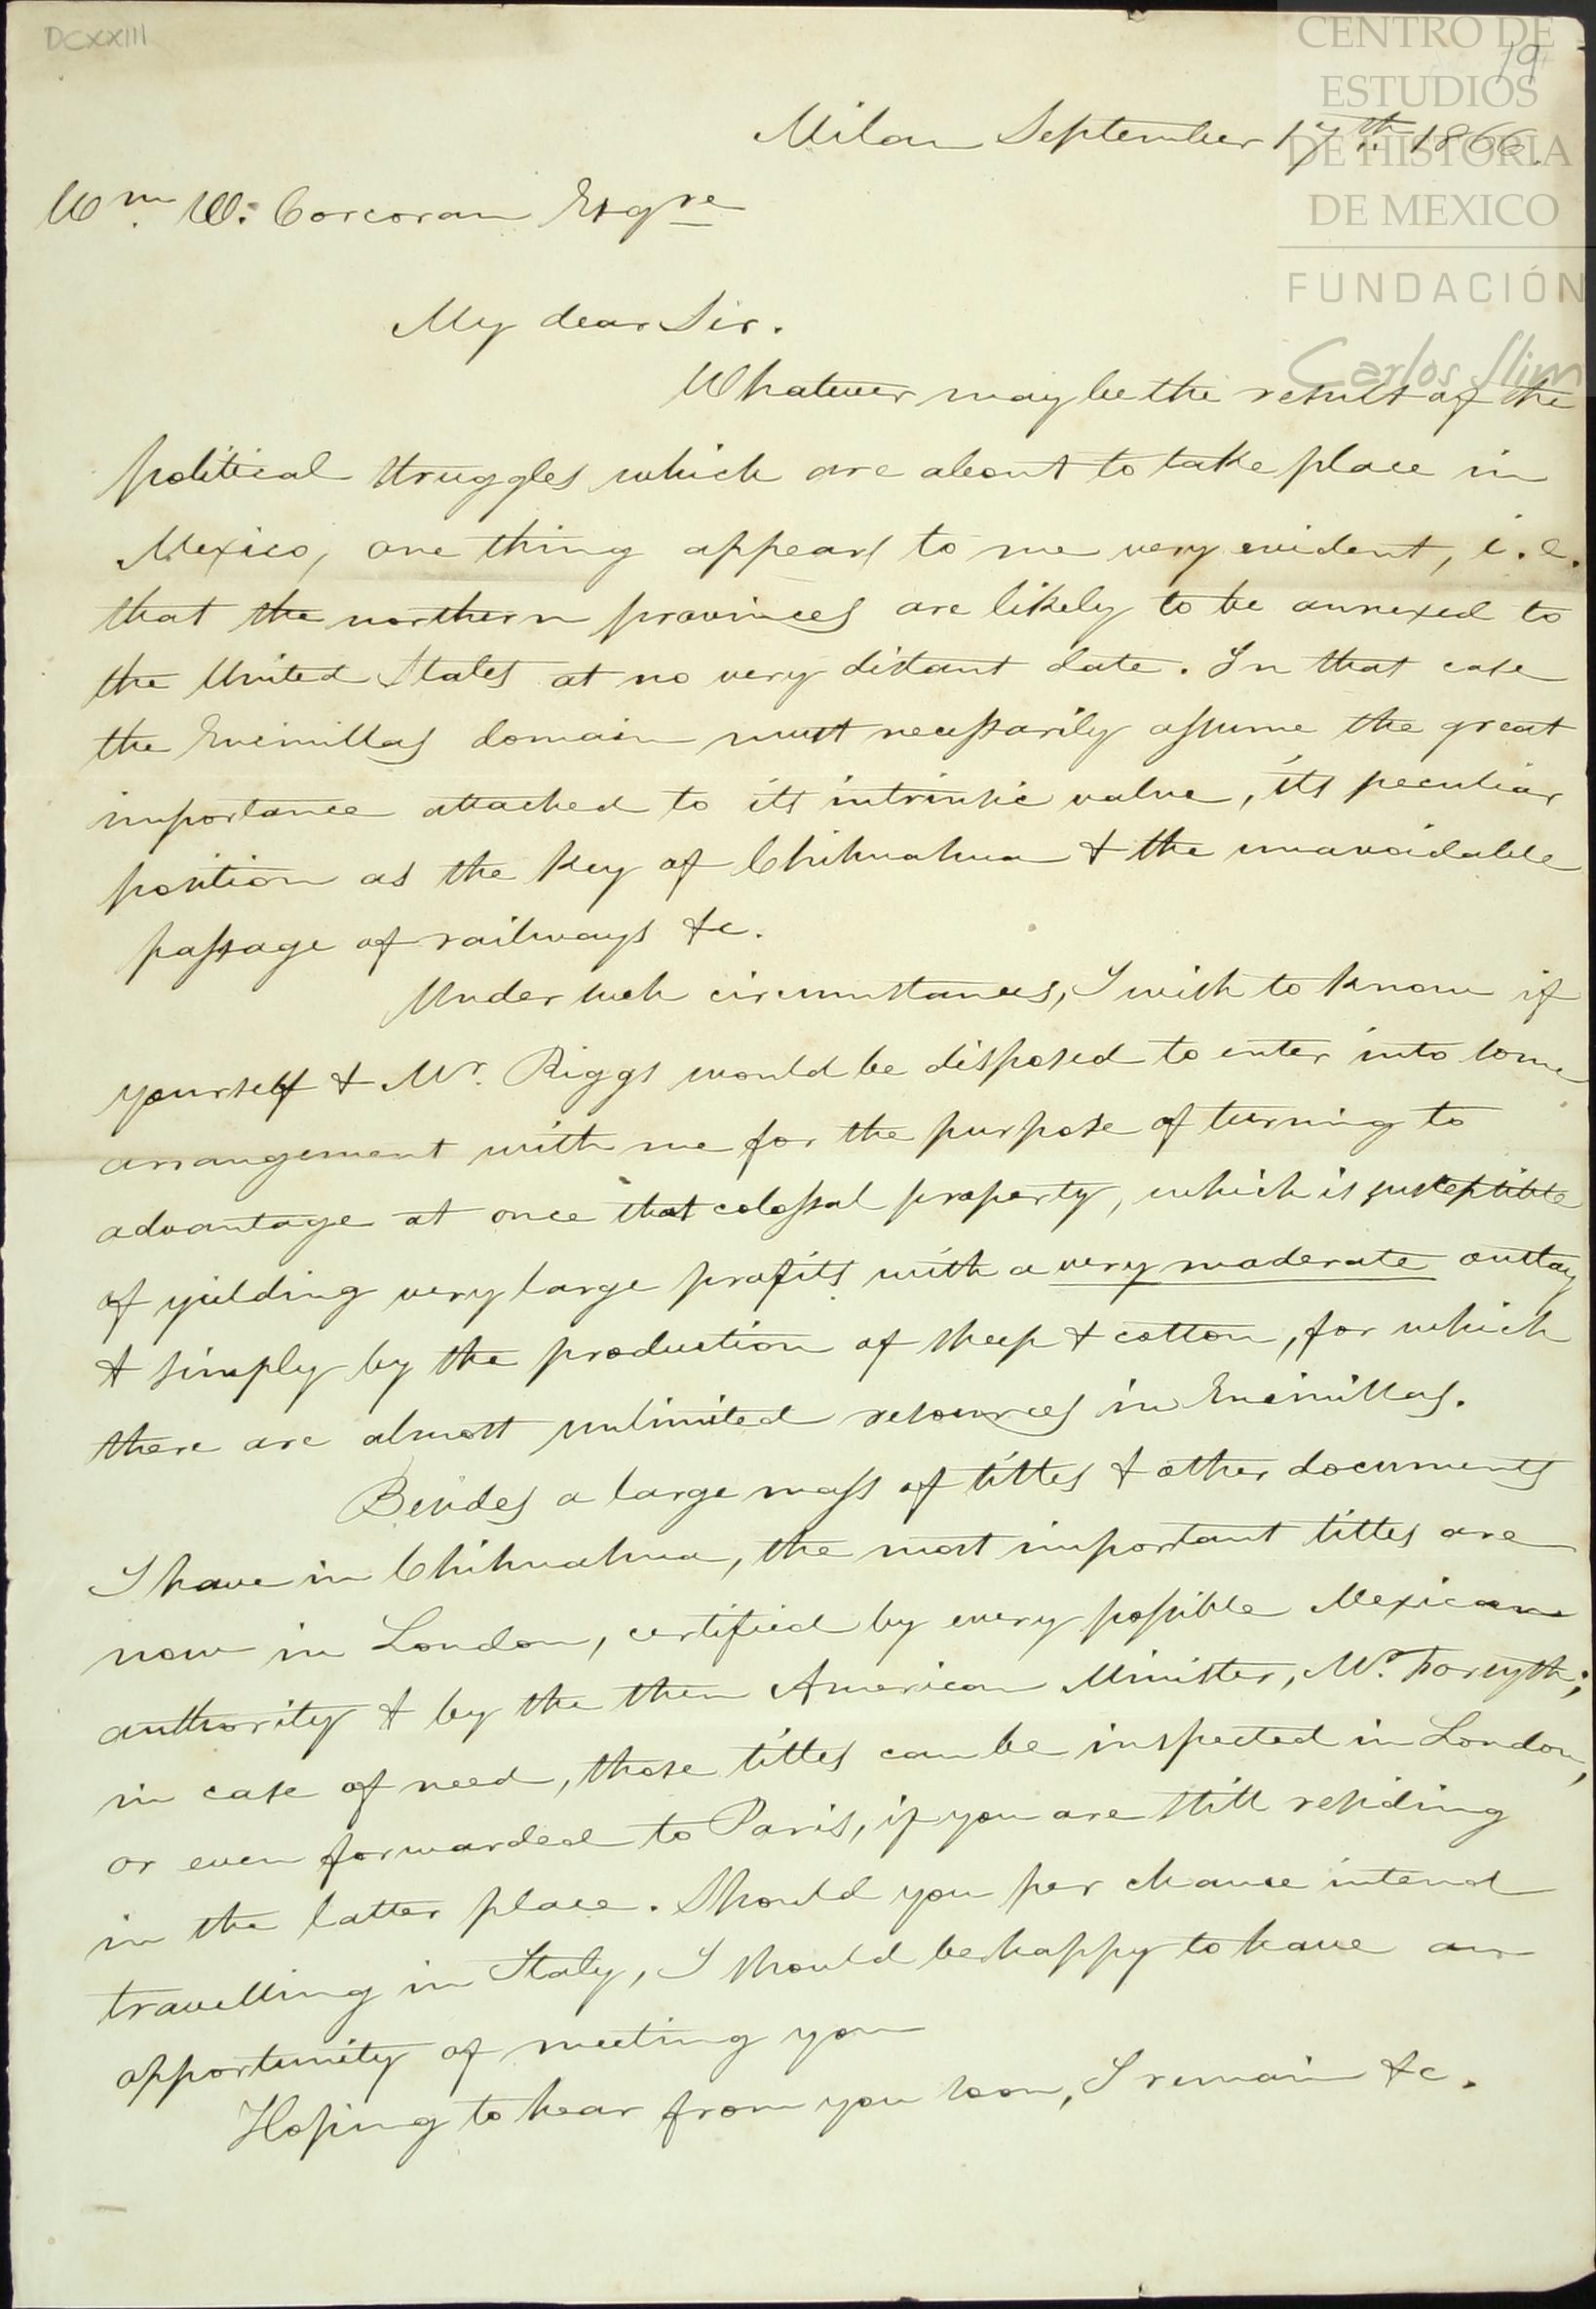 DCXXIII
19
CENTRO DE
ESTUDIOS
DE HISTORIA
DE MEXICO
FUNDACIÓN
Carlos Slim
Milan September 17th 1866.
Wm. W. Corcoran Esqre
My dear Sir.
Whatever may be the result of the
political struggles which are about to take place in
Mexico, one thing appears to me very evident, i.e.
that the northern provinces are likely to be annexed to
the United States at no very distant date. In that case
the Encinillas domain must necessarily assume the great
importance attached to its intrinsic value, its peculiar
position as the Key of Chihuahua & the unavoidable
passage of railways &c.
Under such circumstances, I wish to know if
yourself & Mr. Riggs would be disposed to enter into some
arrangement with me for the purpose of turning to
advantage at once that colossal property, which is susceptible
of yielding very large profits with a very moderate outlay
& simply by the production of sheep & cotton, for which
there are almost unlimited resources in Encinillas.
Besides a large mass of tittes & other documents
I have in Chihuahua, the most important tittes are
now in London, certified by every possible Mexican
authority & by the then American Minister, Mr. Forsyth;
in case of need, those tittes can be inspected in London,
or even forwarded to Paris, if you are still residing
in the latter place. Should you per chance intend
travelling in Italy, I should be happy to have an
opportunity of meeting you
Hoping to hear from you soon, I remain &c.